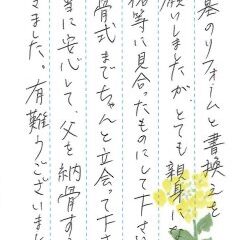 墓のリフォームと書換えを
願いしましたが、とても親身にな
格等に見合ったものにして下さい
骨式までちゃんと立会って下さ
に安心して、父を納骨す
きました。有難うございまし